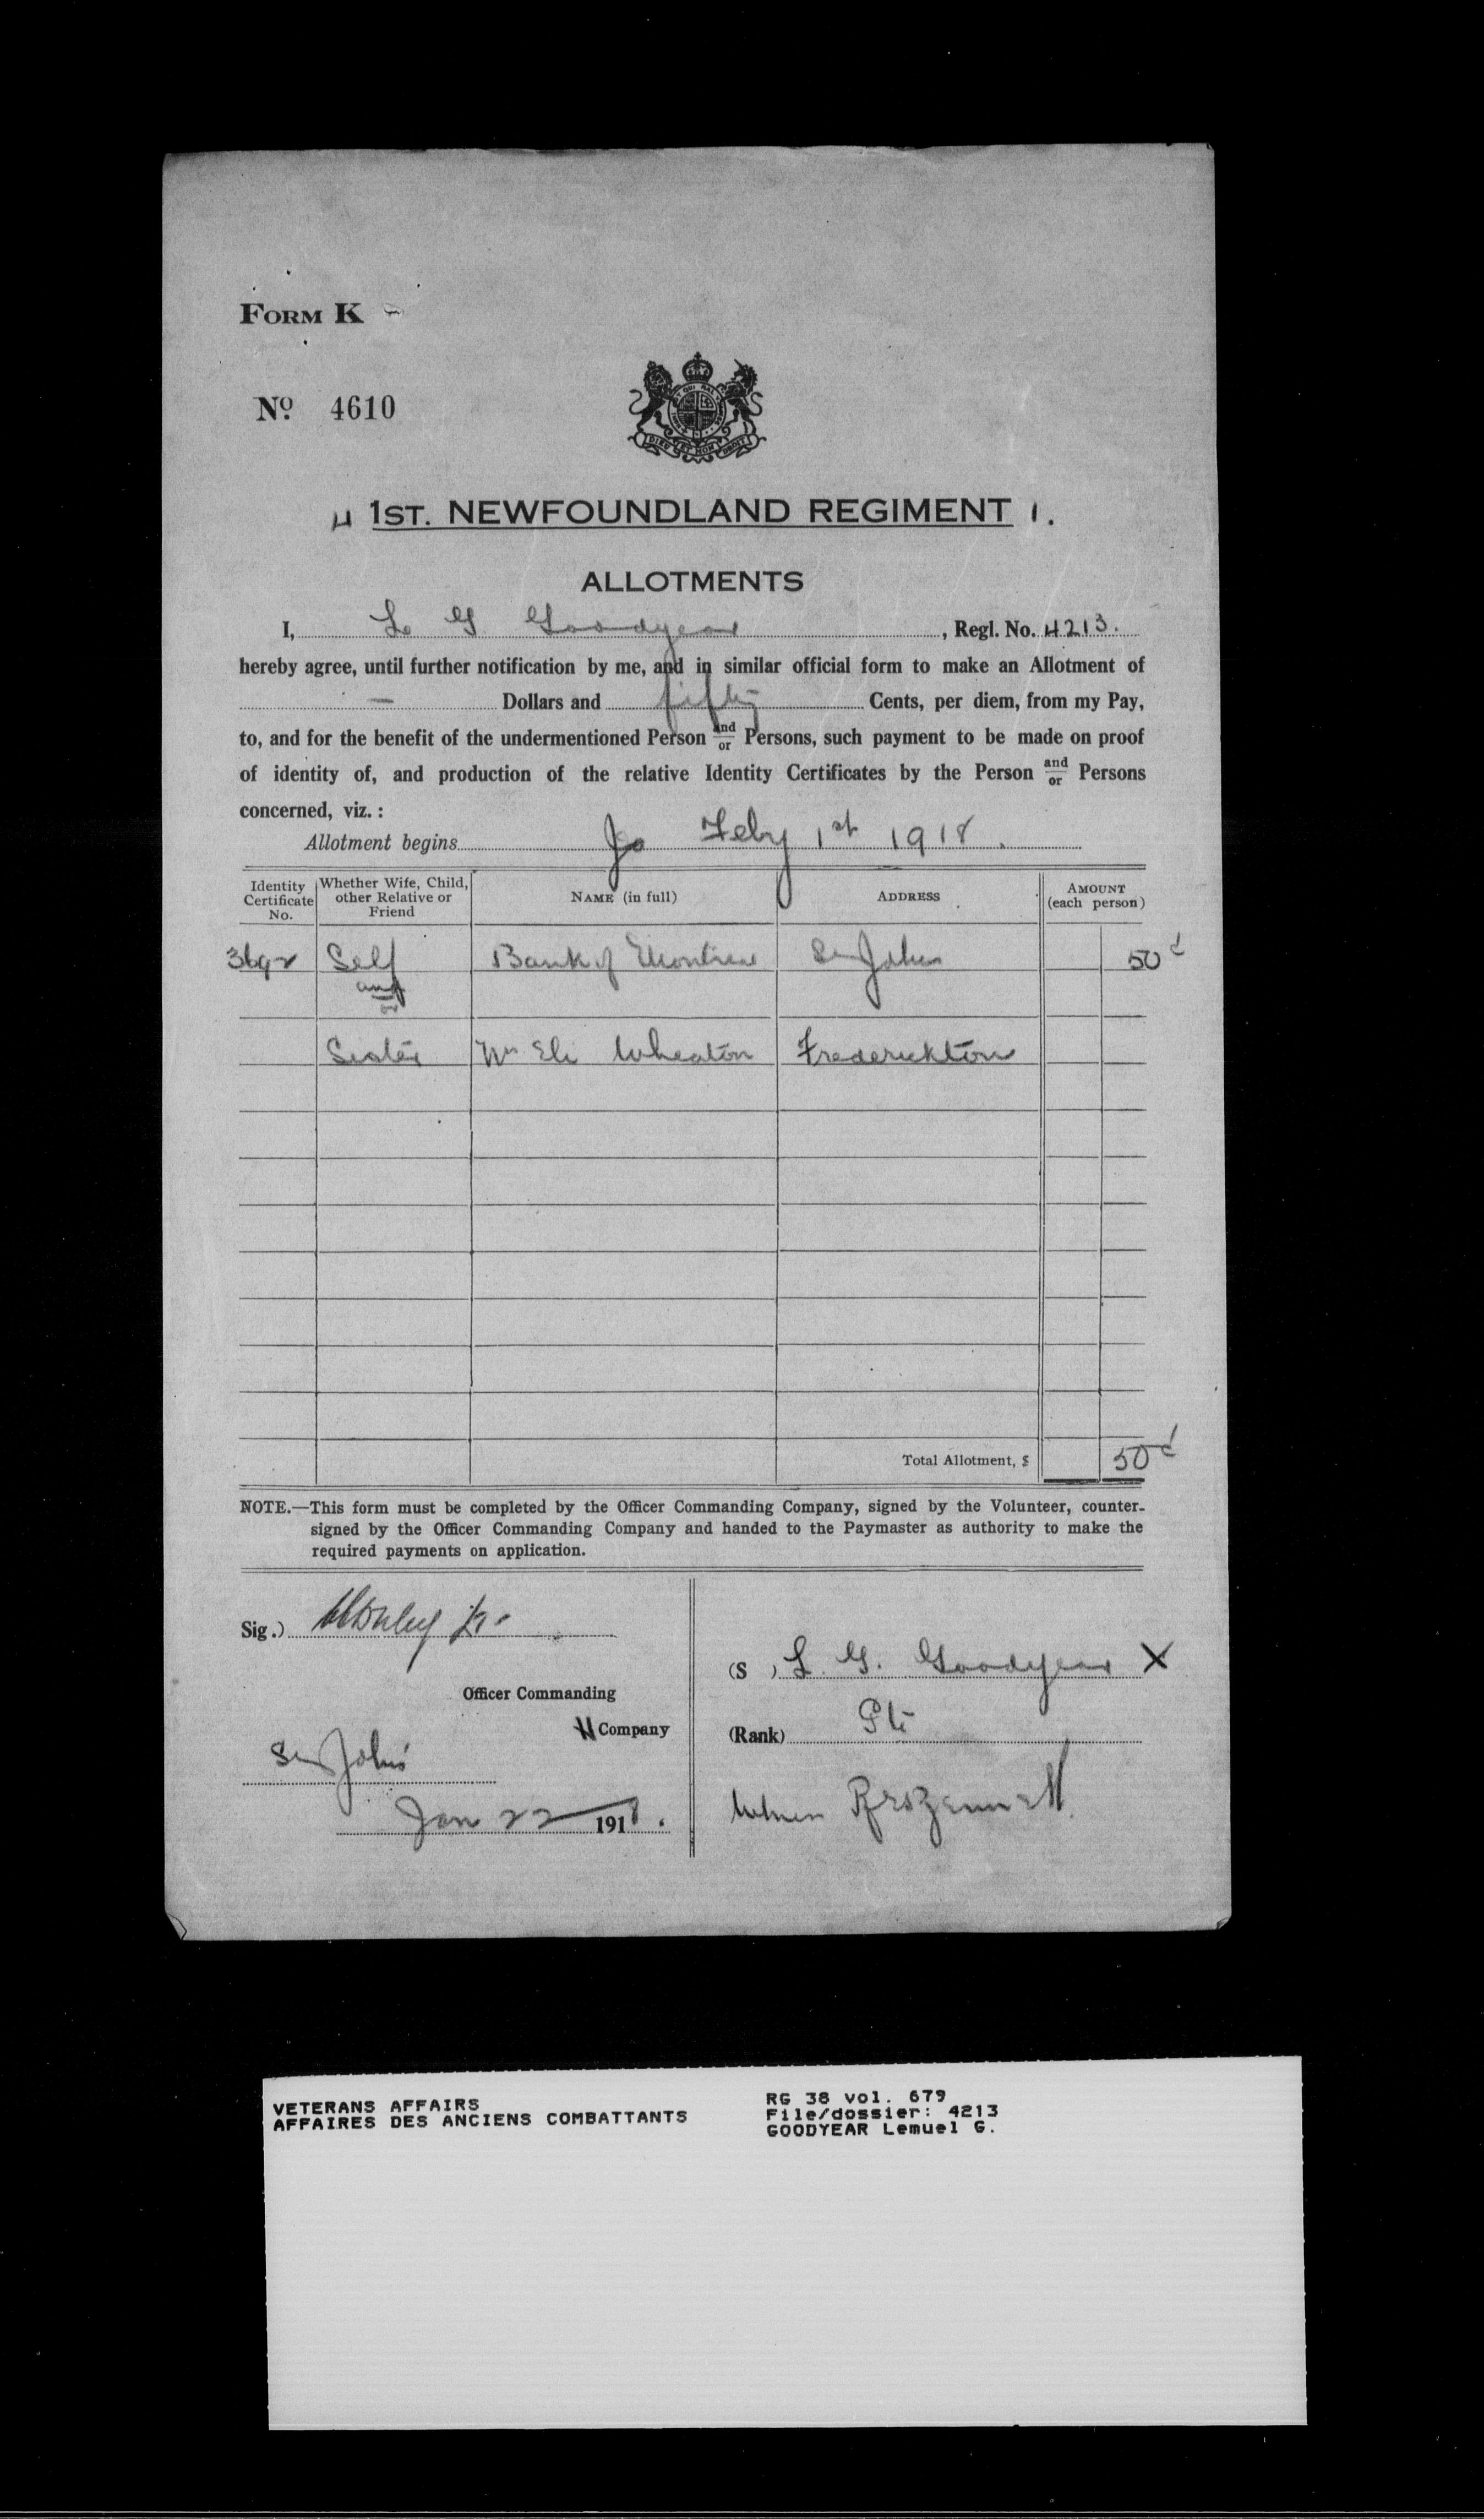 FORM K
No. 4610
DIEU ET MON DROIT
1ST. NEWFOUNDLAND REGIMENT
ALLOTMENTS
I, L G Goodyear, Regl. No. 4213.
hereby agree, until further notification by me, and in similar official form to make an Allotment of
— Dollars and fifty Cents, per diem, from my Pay,
to, and for the benefit of the undermentioned Person and/or Persons, such payment to be made on proof
of identity of, and production of the relative Identity Certificates by the Person and/or Persons
concerned, viz. :
Allotment begins Feby 1st 1918.
Identity Certificate No. Whether Wife, Child, other Relative or Friend NAME (in full) ADDRESS AMOUNT (each person)
Self Bank of Montreal St Johns 50 c
and
or
Sister Eli Wheaton Frederickton
Total Allotment, $ 50 c
NOTE.—This form must be completed by the Officer Commanding Company, signed by the Volunteer, counter-
signed by the Officer Commanding Company and handed to the Paymaster as authority to make the
required payments on application.
Sig.)
(S ) L. G. Goodyear X
Officer Commanding
H Company
(Rank) Pte
St John's
Jan 22 1918.
VETERANS AFFAIRS
AFFAIRES DES ANCIENS COMBATTANTS
RG 38 vol. 679
File/dossier: 4213
GOODYEAR Lemuel G.